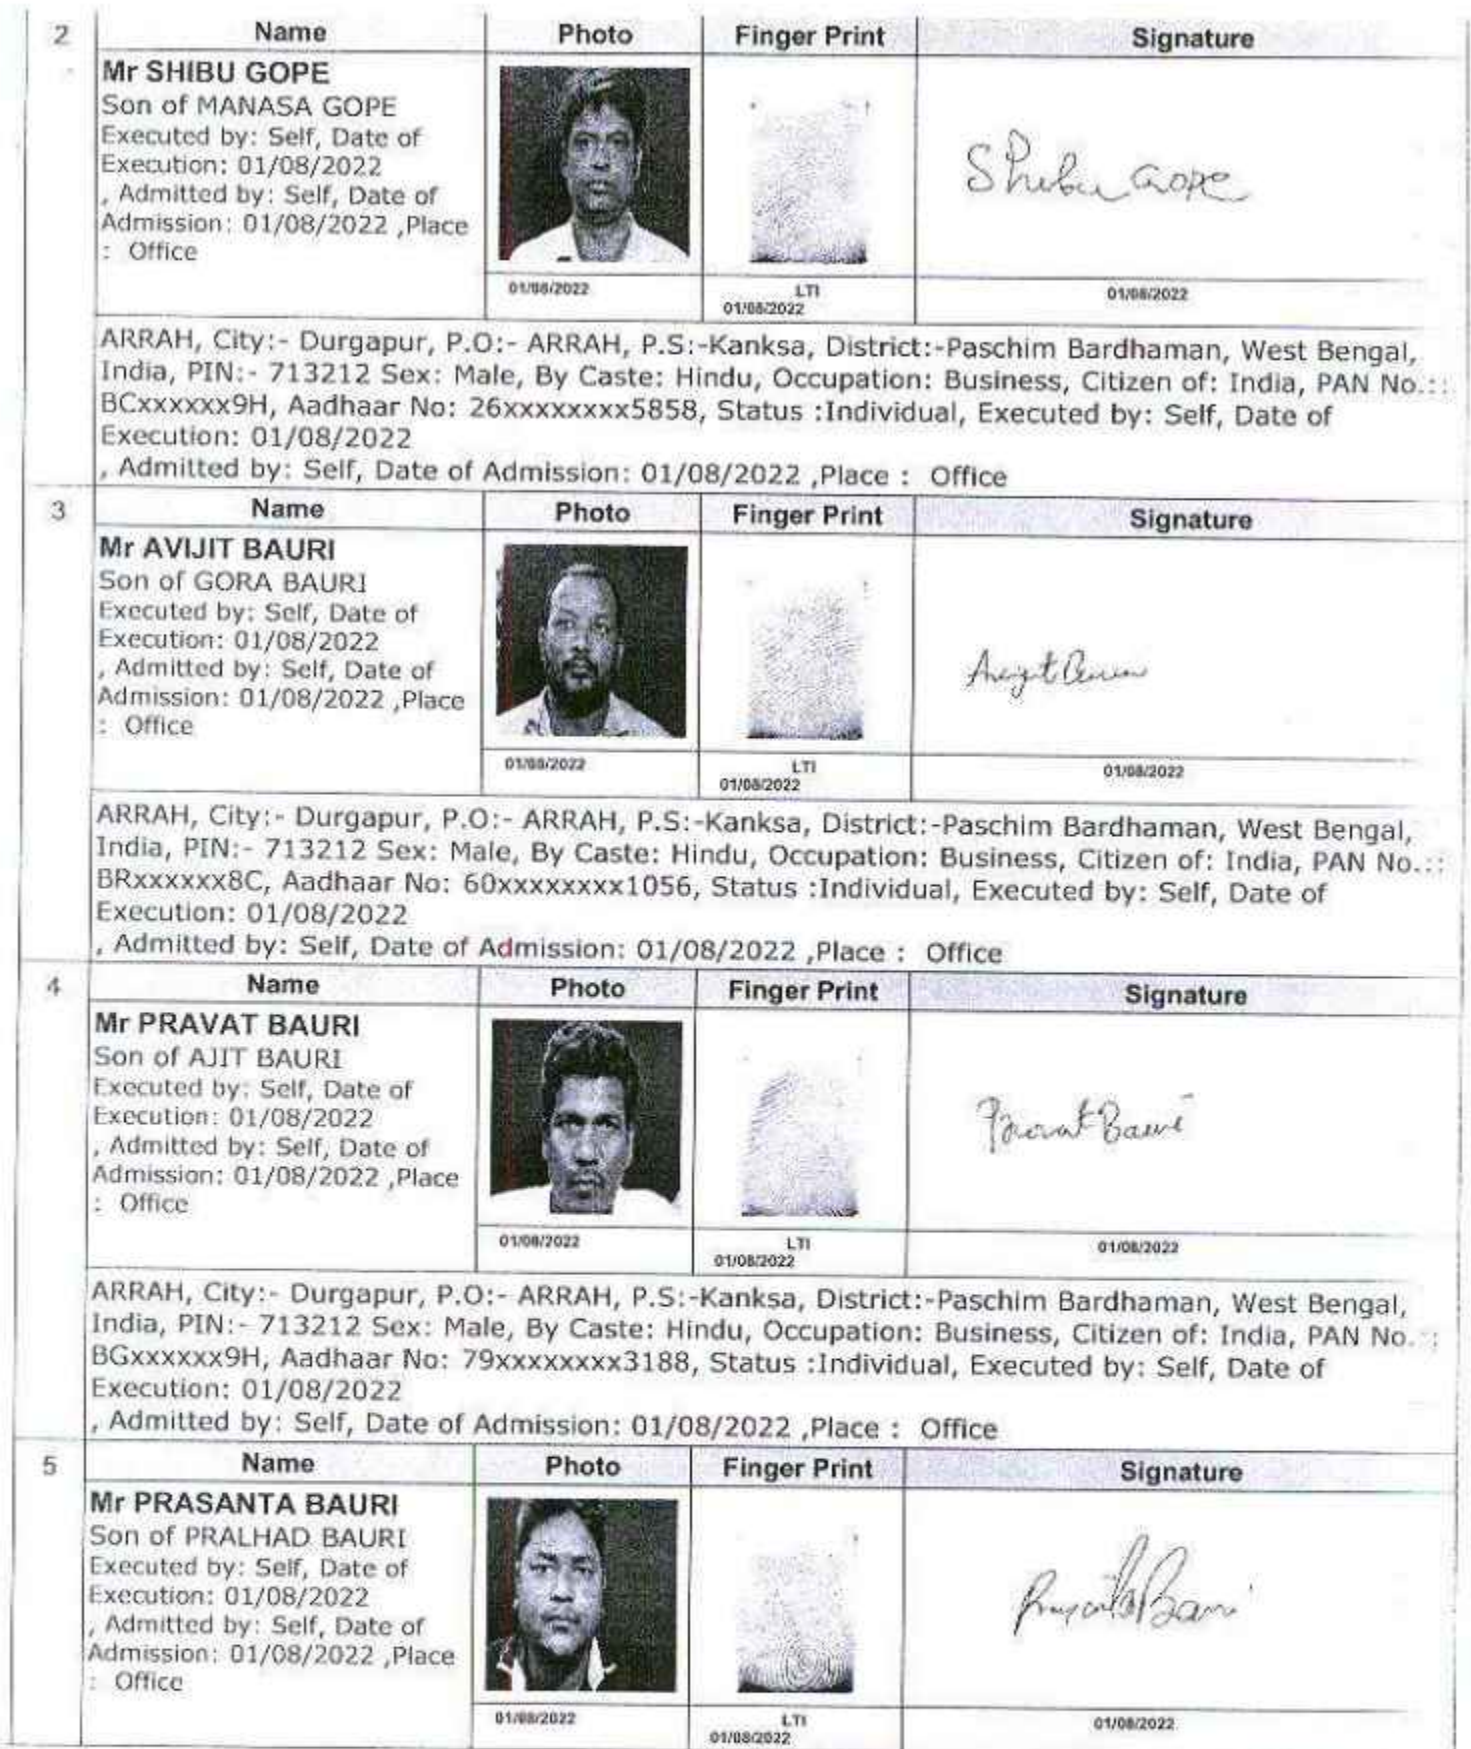 2
Name Photo Finger Print Signature
Mr SHIBU GOPE
Son of MANASA GOPE
Executed by: Self, Date of
Execution: 01/08/2022
, Admitted by: Self, Date of
Admission: 01/08/2022 ,Place
: Office
Shibu Gope
01/08/2022
LTI
01/08/2022
01/08/2022
ARRAH, City:- Durgapur, P.O:- ARRAH, P.S:-Kanksa, District:-Paschim Bardhaman, West Bengal,
India, PIN:- 713212 Sex: Male, By Caste: Hindu, Occupation: Business, Citizen of: India, PAN No.::
BCxxxxxx9H, Aadhaar No: 26xxxxxxxx5858, Status :Individual, Executed by: Self, Date of
Execution: 01/08/2022
, Admitted by: Self, Date of Admission: 01/08/2022 ,Place : Office
3
Name Photo Finger Print Signature
Mr AVIJIT BAURI
Son of GORA BAURI
Executed by: Self, Date of
Execution: 01/08/2022
, Admitted by: Self, Date of
Admission: 01/08/2022 ,Place
: Office
01/08/2022
LTI
01/08/2022
01/08/2022
ARRAH, City:- Durgapur, P.O:- ARRAH, P.S:-Kanksa, District:-Paschim Bardhaman, West Bengal,
India, PIN:- 713212 Sex: Male, By Caste: Hindu, Occupation: Business, Citizen of: India, PAN No.::
BRxxxxxx8C, Aadhaar No: 60xxxxxxxx1056, Status :Individual, Executed by: Self, Date of
Execution: 01/08/2022
, Admitted by: Self, Date of Admission: 01/08/2022 ,Place : Office
4
Name Photo Finger Print Signature
Mr PRAVAT BAURI
Son of AJIT BAURI
Executed by: Self, Date of
Execution: 01/08/2022
, Admitted by: Self, Date of
Admission: 01/08/2022 ,Place
: Office
Pravat Bauri
01/08/2022
LTI
01/08/2022
01/08/2022
ARRAH, City:- Durgapur, P.O:- ARRAH, P.S:-Kanksa, District:-Paschim Bardhaman, West Bengal,
India, PIN:- 713212 Sex: Male, By Caste: Hindu, Occupation: Business, Citizen of: India, PAN No.::
BGxxxxxx9H, Aadhaar No: 79xxxxxxxx3188, Status :Individual, Executed by: Self, Date of
Execution: 01/08/2022
, Admitted by: Self, Date of Admission: 01/08/2022 ,Place : Office
5
Name Photo Finger Print Signature
Mr PRASANTA BAURI
Son of PRALHAD BAURI
Executed by: Self, Date of
Execution: 01/08/2022
, Admitted by: Self, Date of
Admission: 01/08/2022 ,Place
: Office
01/08/2022
LTI
01/08/2022
01/08/2022